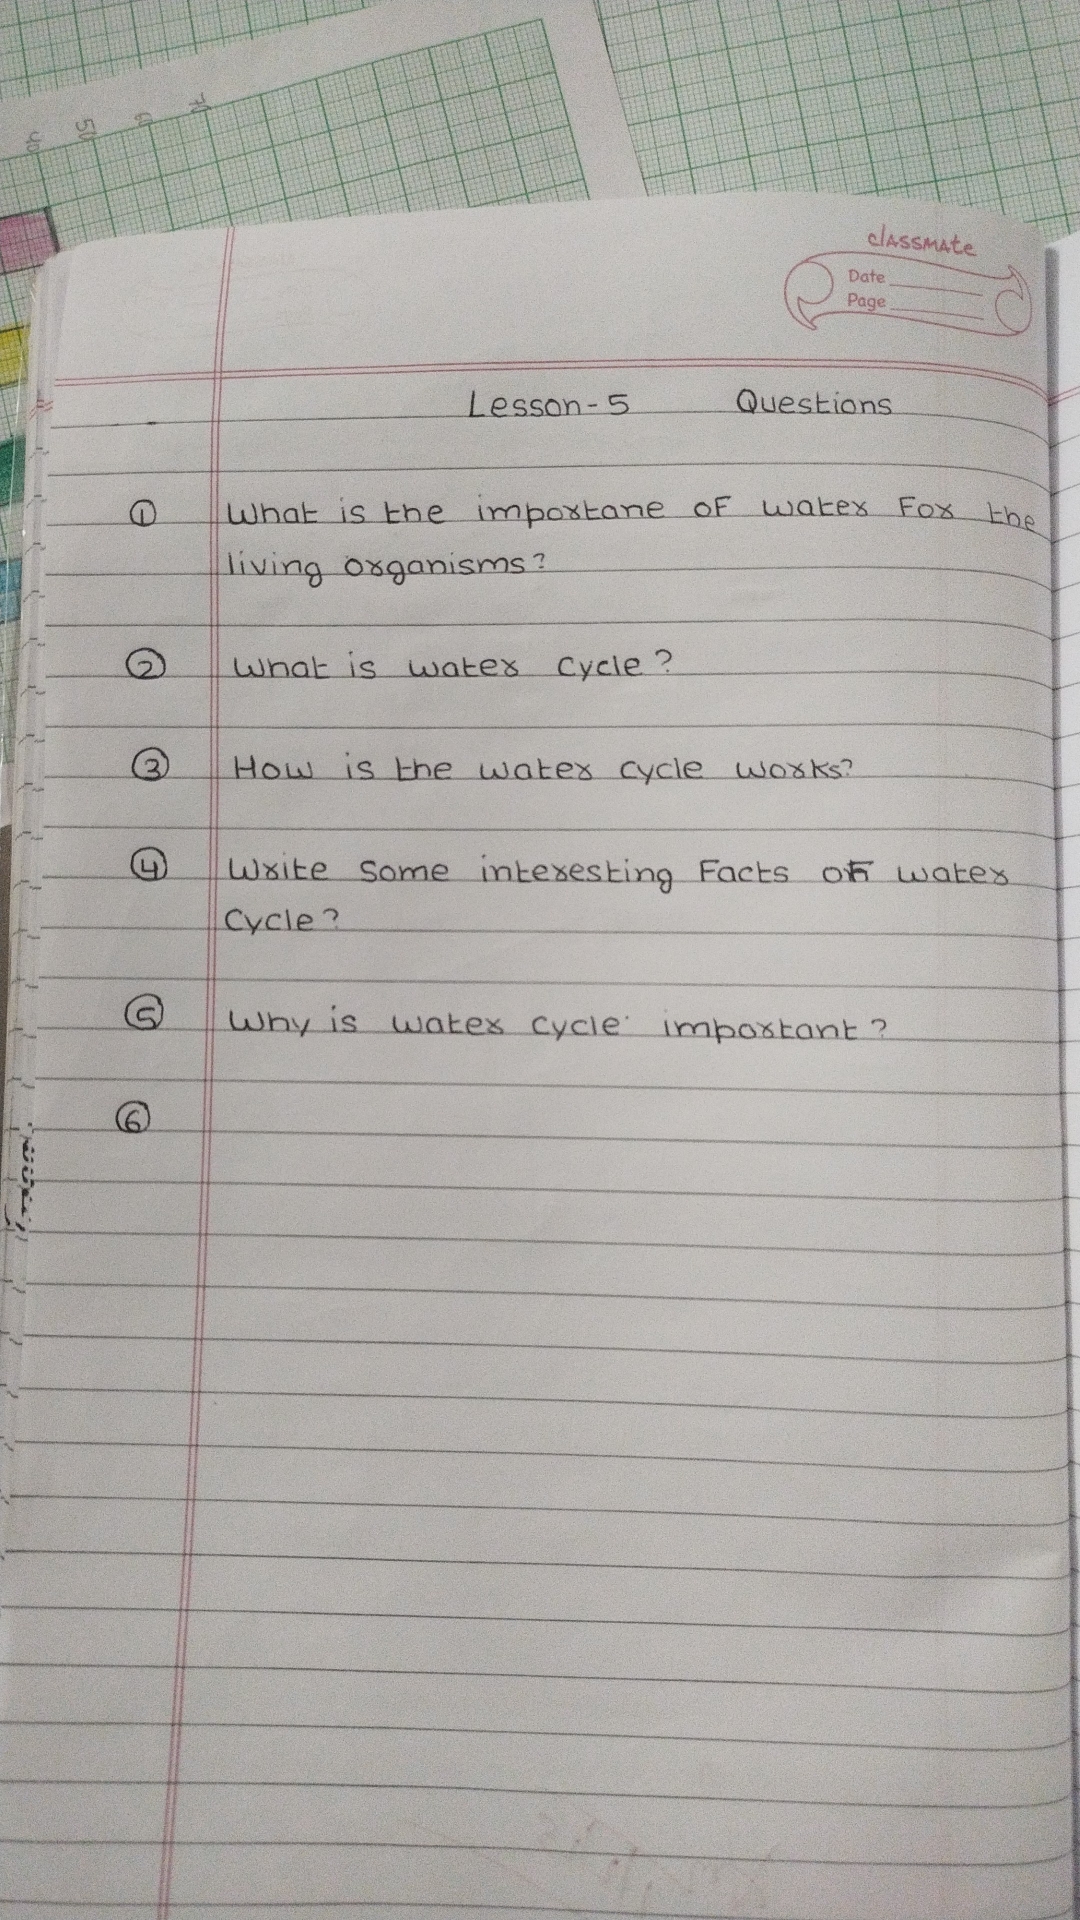 40 50 60 70
classmate
Date
Page
Lesson-5 Questions
① What is the importane of water For the
living organisms?
② What is water cycle?
③ How is the water cycle works?
④ Write some interesting Facts of water
cycle?
⑤ Why is water cycle important?
⑥